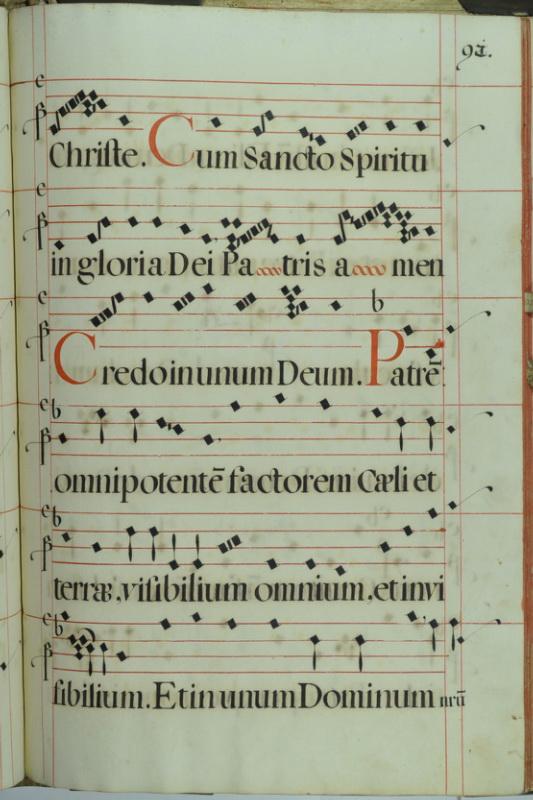 Chriſte. Cum Sancto Spiritu
in gloria Dei Patris amen
Credo in unum Deum. Patrē
omnipotentē factorem Cæli et
terræ, viſibilium omnium, et invi
ſibilium. Et in unum Dominum nrū